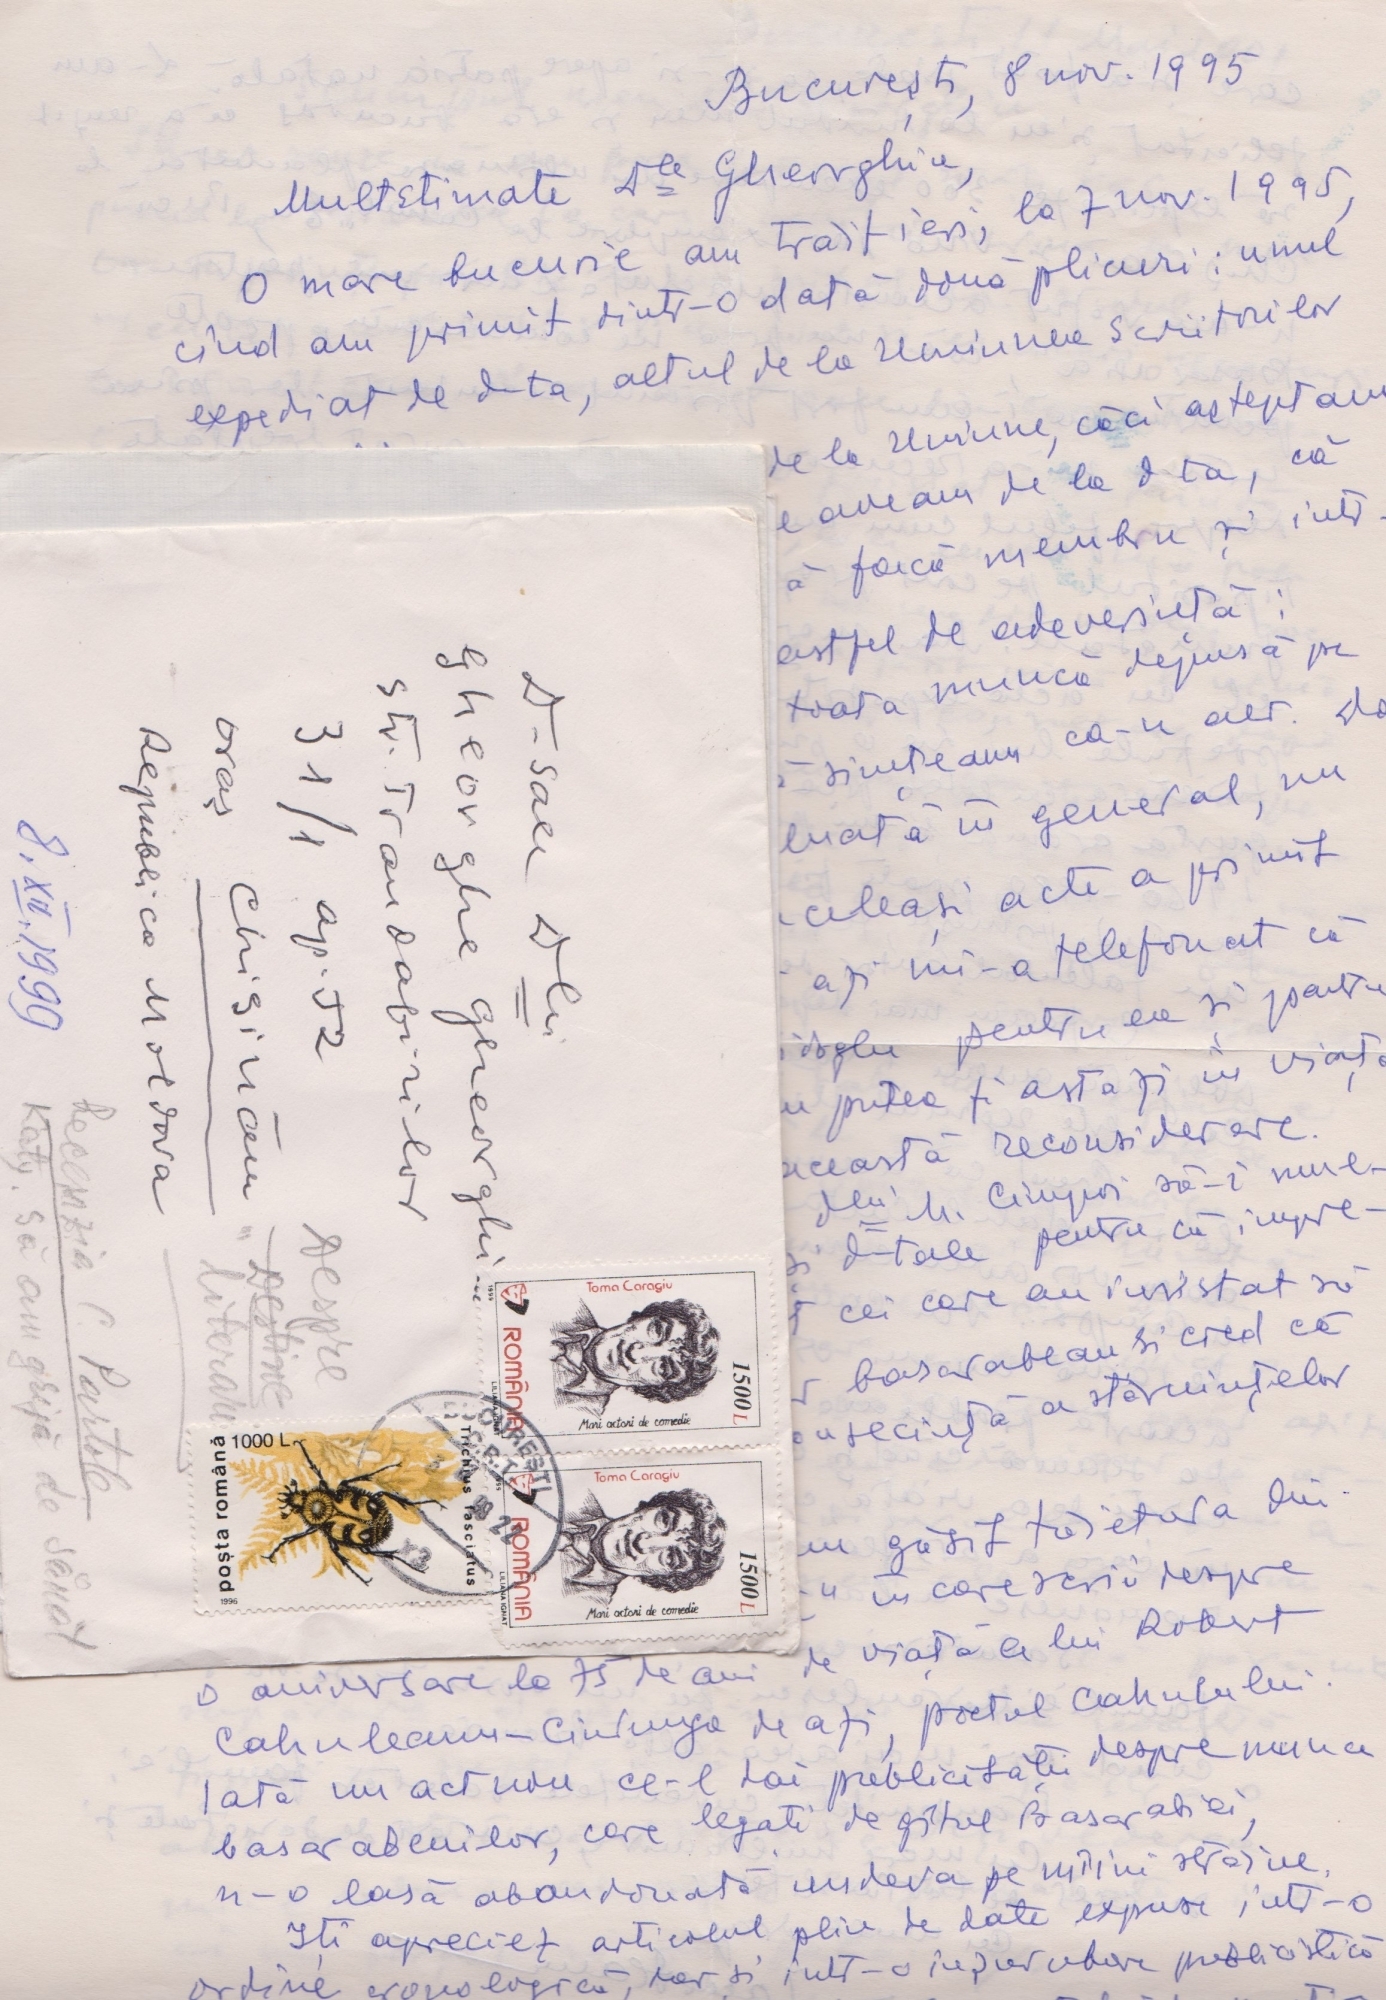 București, 8 nov. 1995
Multstimate Dle Gheorghiu,
O mare bucurie am trăit ieri, la 7 nov. 1995,
cînd am primit dintr-o dată două plicuri: unul
expediat de d-ta, altul de la Uniunea Scriitorilor
de la Uniune, căci așteptam
aveam de la d-ta, că
ă facă membru și intr-
astfel de adeverință;
toată muncă depusă pe
simțeam ca-n aer. Da
în general, nu
aceleași acte a primit
azi mi-a telefonat că
pentru ea și pentru
putea fi astăzi în viață
această reconsiderare.
dlui M. Cimpoi să-i mul-
și d-tale pentru că impre-
cei care au insistat să
basarabean și cred că
consecință a stăruințelor
am găsit tăietura din
în care scrii despre
o aniversare la 75 de ani de viață a lui Robert
Cahuleanu-Ciubuga de azi, poetul Cahulului.
Iată un act nou ce-l dai publicității despre munca
basarabenilor, care legați de gîtul Basarabiei,
n-o lasă abandonată undeva pe mîini străine.
Iți apreciez articolul plin de date expuse într-o
ordine cronologică, dar și într-o publicistică
D-Sale Dlui
Gheorghe Gheorghiu
str. Trandafirilor
31/1 ap. 52
oraș Chișinău
Republica Moldova
8.XII.1999
Despre
"Destine
Literare
Recenzia C. Partole
Katy. să am grijă de sănăt
Toma Caragiu
ROMÂNIA
1500 L
Mari actori de comedie
LILIANA IGNAT
Toma Caragiu
ROMÂNIA
1500 L
Mari actori de comedie
LILIANA IGNAT
poșta română
1000 L
Trichius fasciatus
1996